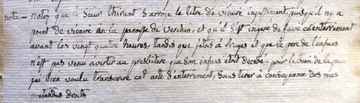 nota - notez que le Sieur thirient Sarroge le titre de vicaire injustement puisquil ny a
point de vicaire en la paroisse de Verchin; et qu'il s'est ingeré de faire cet enterrement
avant les vingt quatre heures, tandis que j'étois à et que le pere de l'enfans
n'est pas venu avertir au presbitere que son enfans etoit decedé; pour le bien de la paix
j'ai bien voulu transcrire cet acte d'enterrement, Sans tirer à consequence des mes
droits